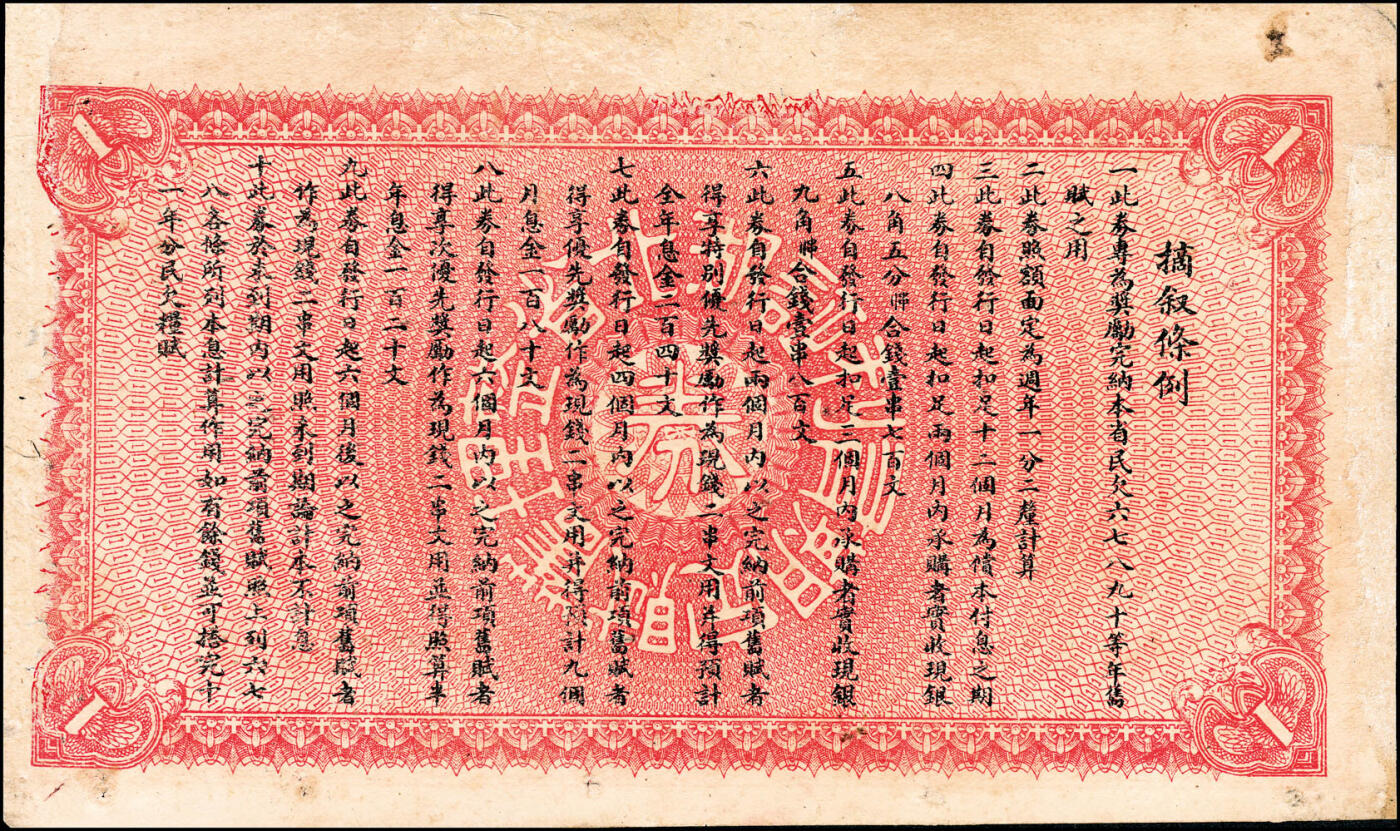 摘叙條例
一此券專為獎勵完納本省民欠六七八九十等年舊
賦之用
二此券照額面定為週年一分二釐計算
三此券自發行日起扣足十二個月為償本付息之期
四此券自發行日起扣足兩個月內承購者實收現銀
八角五分聯合錢壹串七百文
五此券自發行日起扣足三個月內承購者實收現銀
九角聯合錢壹串八百文
六此券自發行日起兩個月內以之完納前項舊賦者
得享特別優先獎勵作為現錢二串文用并得預計
全年息金二百四十文
七此券自發行日起四個月內以之完納前項舊賦者
得享優先獎勵作為現錢二串文用并得預計九個
月息金一百八十文
八此券自發行日起六個月內以之完納前項舊賦者
得享次優先獎勵作為現錢二串文用並得照算半
年息金一百二十文
九此券自發行日起六個月後以之完納前項舊賦者
作為現錢二串文用照未到期論計本不計息
十此券於未到期內以之完納前項舊賦照上列六七
八各條所列本息計算作用如有餘錢並可搭完十
一年分民欠糧賦
券
湖北省
1
1
1
1